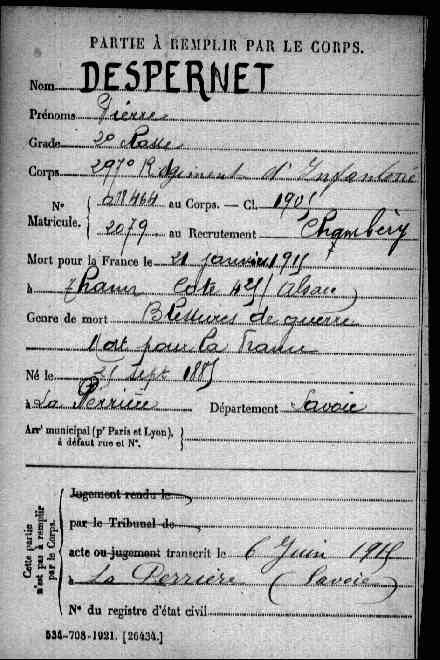 PARTIE À REMPLIR PAR LE CORPS.
Nom DESPERNET
Prénoms Pierre
Grade 2e Classe
Corps 297e Régiment d'Infanterie
N° Matricule. 011464 au Corps. — Cl. 1905
2079 au Recrutement Chambéry
Mort pour la France le 21 janvier 1915
à Thann Cote 425 (Alsace)
Genre de mort Blessures de guerre
Mort pour la France
Né le sept 1885
à La Perrière Département Savoie
Arrt municipal (pr Paris et Lyon),
à défaut rue et N°.
Cette partie n'est pas à remplir par le Corps.
Jugement rendu le
par le Tribunal de
acte ou jugement transcrit le 6 Juin 1915
à La Perrière (Savoie)
N° du registre d'état civil
534-708-1921. [26434.]